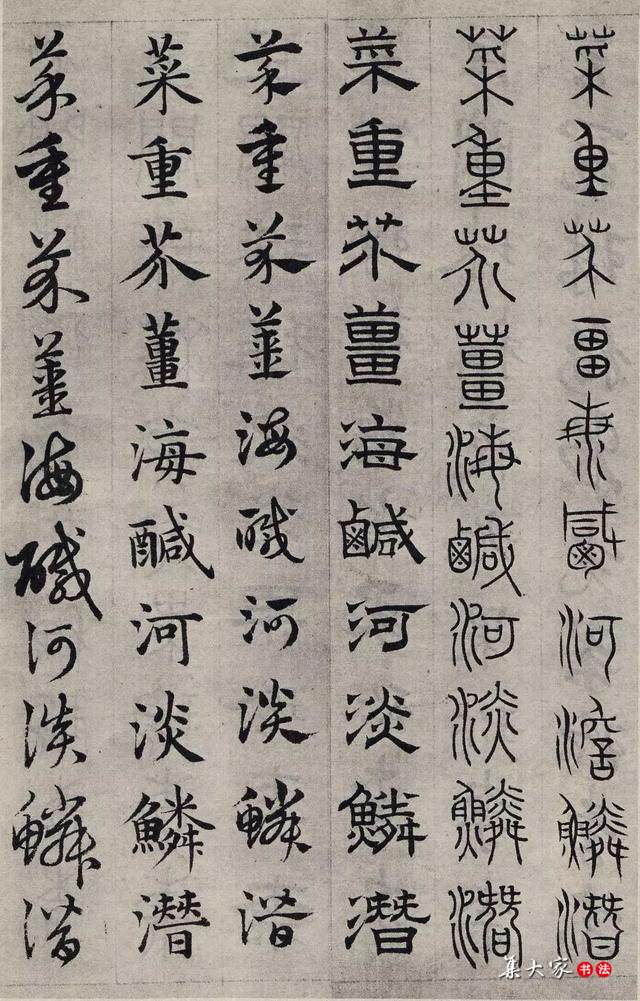 菜重芥薑海鹹河淡鱗潛
菜重芥薑海鹹河淡鱗潛
菜重芥薑海鹹河淡鱗潛
菜重芥薑海醎河淡鱗潛
菜重芥薑海醎河淡鱗潛
菜重芥薑海醎河淡鱗潛
集大家书法